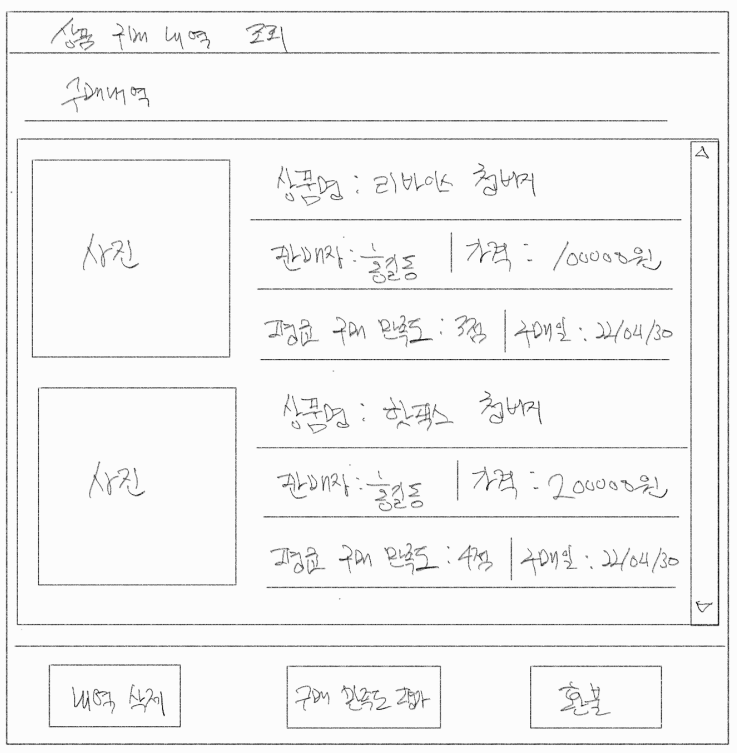 상품 구매 내역 조회
구매내역
사진
상품명 : 리바이스 청바지
판매자 : 홍길동 | 가격 : 100000원
평균 구매 만족도 : 3점 | 구매일 : 22/04/30
사진
상품명 : 핫팩스 청바지
판매자 : 홍길동 | 가격 : 200000원
평균 구매 만족도 : 4점 | 구매일 : 22/04/30
내역 삭제
구매 만족도 평가
환불